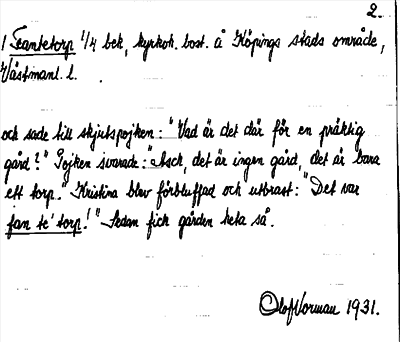 2.
1 Fantetorp 1/4 bek, kyrkoh. bost. å Köpings stads område,
Västmanl. l.
och sade till skjutspojken: "Vad är det där för en präktig
gård?" Pojken svarade: "Asch, det är ingen gård, det är bara
ett torp." Kristina blev förbluffad och utbrast: "Det var
fan te' torp!" Sedan fick gården heta så.
Olof Norman 1931.